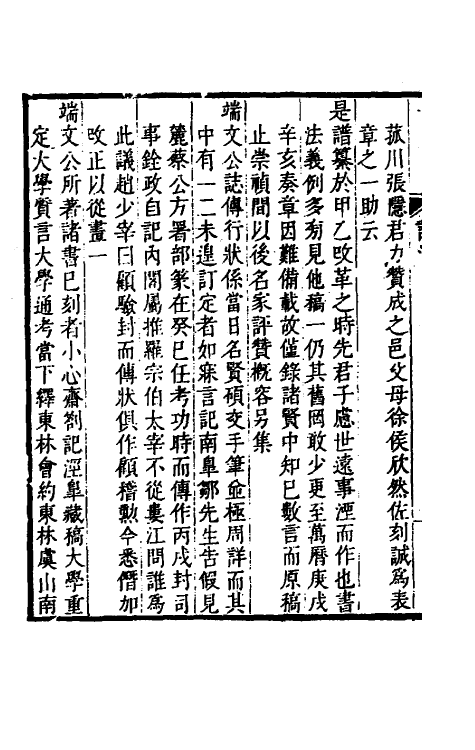 菰川張隱君力贊成之邑父母徐侯欣然佐刻誠爲表
章之一助云
是譜纂於甲乙改革之時先君子慮世遠事湮而作也書
法義例多芴見他稿一仍其舊罔敢少更至萬曆庚戌
辛亥奏章因難備載故僅錄諸賢中知巳數言而原稿
止崇禎間以後名家評贊概容另集
端文公誌傳行狀係當日名賢碩交手筆並極周詳而其
中有一二未遑訂定者如寐言記南皐鄒先生告假見
麓蔡公方署部篆在癸巳任考功時而傳作丙戌封司
事銓政自記内閣屬推羅宗伯太宰不從婁江問誰爲
此議趙少宰曰顧驗封而傳狀俱作顧稽勲今悉僭加
改正以從畫一
端文公所著諸書巳刻者小心齋劄記涇臯藏稿大學重
定大學質言大學通考當下繹東林會約東林虞山南